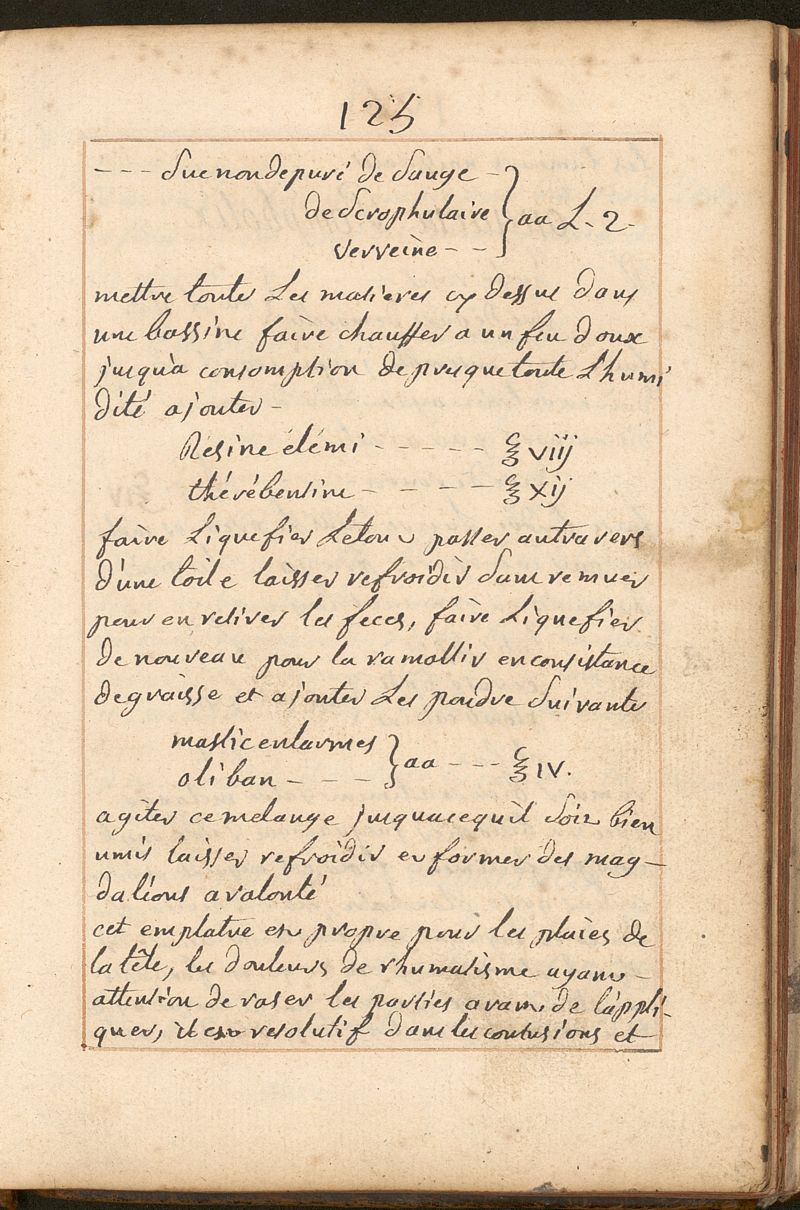 125
--- Suc non depuré de Sauge -
de Scrophulaire } aa L. 2-
Verveine --
mettre toutes Les matieres cy dessus dans
une bassine faire chauffer a un feu doux
jusqu'a consomption de presque toute L'humi
dité ajouter -
Resine élémi ----- ℥ viij
thérébentine ---- ℥ xij
faire Liquefier Letout passer autravers
d'une toile laisser refroidir Sans remuer
pour en retirer les feces, faire Liquefier
de nouveau pour la ramollir en consistance
de graisse et ajouter Les poudre Suivante
mastic en larmes
oliban --- } aa --- ℥ iv.
agiter ce melange jusquacequil Soit bien
umis laisser refroidir et former des mag-
daléons a volonté
cet emplatre est propre pour les plaies de
la tête, les douleurs de rhumatisme ayant -
attention de raser les parties avant de l'appli-
quer, il est resolutif dans les contusions et